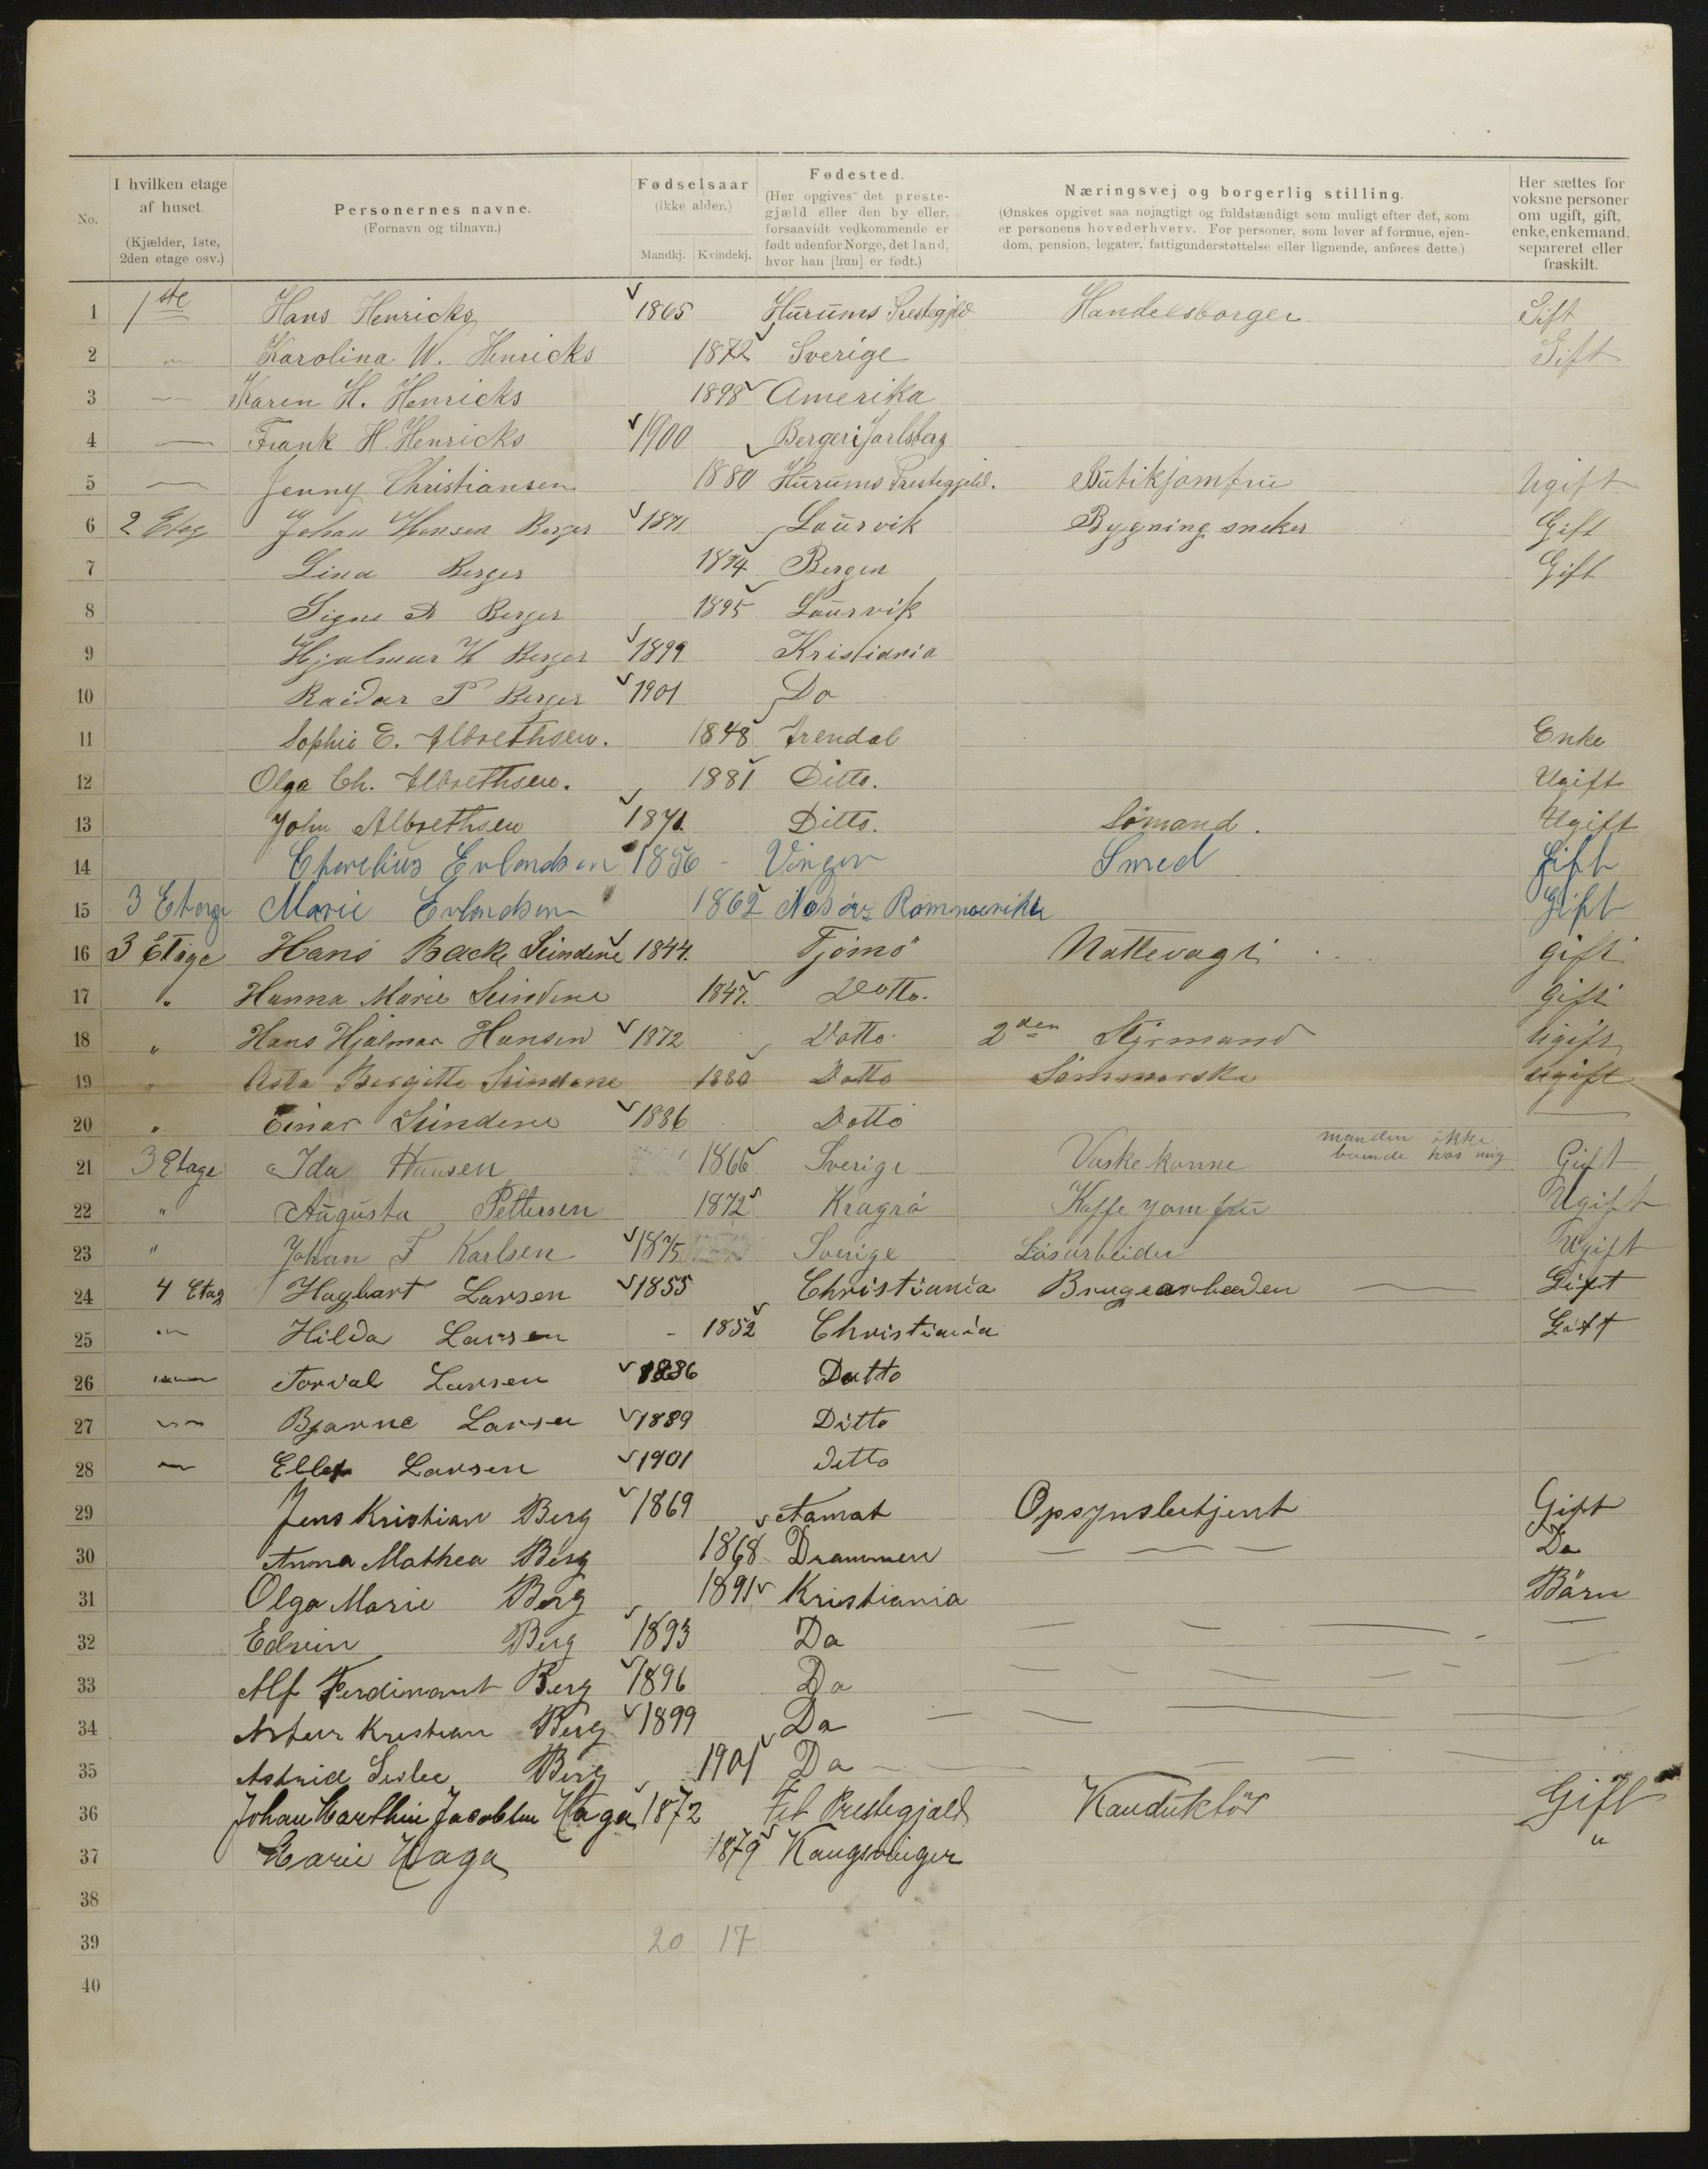 No.
I hvilken etage
af huset.
(Kjælder, 1ste,
2den etage osv.)
Personernes navne.
(Fornavn og tilnavn.)
Fødselsaar
(ikke alder.)
Mandkj. Kvindekj.
Fødested.
(Her opgives det preste-
gjæld eller den by eller,
forsaavidt vedkommende er
født udenfor Norge, det land,
hvor han [hun] er født.)
Næringsvej og borgerlig stilling.
(Ønskes opgivet saa nøjagtigt og fuldstændigt som muligt efter det, som
er personens hovederhverv. For personer, som lever af formue, ejen-
dom, pension, legater, fattigunderstøttelse eller lignende, anføres dette.)
Her sættes for
voksne personer
om ugift, gift,
enke, enkemand,
separeret eller
fraskilt.
1 1ste Hans Henricks 1865 Hurums Prestegjld Handelsborger Gift
2 " Karolina W. Henricks 1872 Sverige Gift
3 — Karen H. Henricks 1898 Amerika
4 — Frank H. Henricks 1900 Berger i Jarlsberg
5 — Jenny Christiansen 1880 Hurums Prestegjeld. Butikjomfru Ugift
6 2 Etag Johan Hansen Berger 1871 Laurvik Bygning sneker Gift
7 Lina Berger 1874 Bergen Gift
8 Signe A Berger 1895 Laurvik
9 Hjalmar H Berger 1899 Kristiania
10 Raidar P Berger 1901 Do
11 Sophie E. Albrethsen. 1848 Arendal Enke
12 Olga Ch. Albrethsen. 1881 Ditto. Ugift
13 John Albrethsen 1871. Ditto. Sømand. Ugift
14 Erlandsen 1856 - Vinger Smed Gift
15 3 Etage Marie Erlandsen 1862 Nes Gift
16 3 Etage Hans Back Sundene 1844. Tjömö Nattevagt gift
17 " Hanna Marie Sundene 1847. Dotto. gift
18 " Hans Hjalmar Hansen 1872 Dotto 2den Styrmand Ugift
19 " Asta Bergitte Sundene 1880 Dotto Sömmerske ugift
20 " Einar Sundene 1886 Dotto —
21 3 Etage Ida Hansen 1866 Sverige Vaskekonne manden ikke
boende hos mig Gift
22 " Augusta Pettersen 1872 Kragrö Kaffe yomfru Ugift
23 " Johan F Karlsen 1875 Sverige Løsarbeider Ugift
24 4 Etag Haybart Larsen 1855 Christiania Brugearbeeden — Gift
25 " Hilda Larsen - 1852 Christiania Gift
26 " Torval Larsen 1886 Ditto
27 " Bjarne Larsen 1889 Ditto
28 — Ellef Larsen 1901 Ditto
29 Jens Kristian Berg 1869 Opsynsbetjent Gift
30 Anna Mathea Berg 1868 Drammen — — — Do
31 Olga Marie Berg 1891 Kristiania Börn
32 Edvin Berg 1893 Do — — — — —
33 Alf Ferdinant Berg 1896 Do — — — — —
34 Artur Kristian Berg 1899 Do — — — —
35 Astrid Berg 1901 Do — — — — —
36 Johan Marthin Jacobsen Haga 1872 Fet Prestegjæld Konduktör Gift
37 Marie Haga 1879 Kongsvinger "
38
39 20 17
40